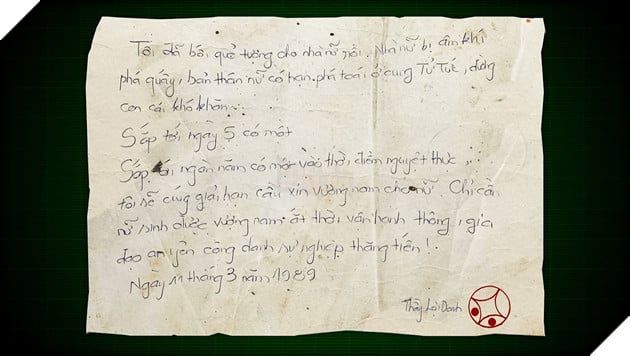 Tôi đã bói quẻ tường cho nhà nữ rồi. Nhà nữ bị âm khí
phá quấy, bản thân nữ có hạn phá toái ở cung Tử Tức, đường
con cái khó khăn.
Sắp tới ngày 5 có một
Sắp tới ngàn năm có một vào thời điểm nguyệt thực
tôi sẽ cúng giải hạn cầu xin vương nam cho nữ. Chỉ cần
nữ sinh được vương nam ắt thời vận hanh thông, gia
đạo an yên công danh sự nghiệp thăng tiến!
Ngày 11 tháng 3 năm 1989
Thầy Lại Danh